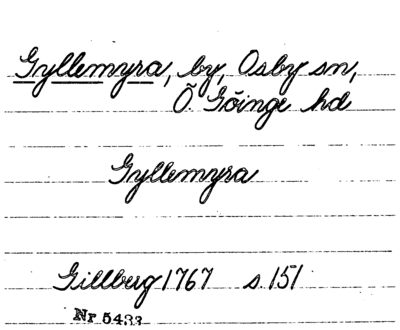 Gyllemyra, by, Osby sn,
Ö Göinge hd
Gyllemyra
Gillberg 1767 s 151
Nr 5433